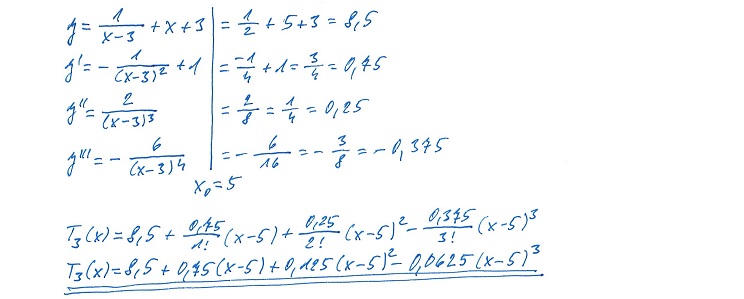 y = 1/(x-3) + x + 3 | = 1/2 + 5 + 3 = 8,5
y' = - 1/(x-3)² + 1 | = -1/4 + 1 = 3/4 = 0,75
y'' = 2/(x-3)³ | = 2/8 = 1/4 = 0,25
y''' = - 6/(x-3)⁴ | = - 6/16 = - 3/8 = - 0,375
x₀ = 5
T₃(x) = 8,5 + 0,75/1! (x-5) + 0,25/2! (x-5)² - 0,375/3! (x-5)³
T₃(x) = 8,5 + 0,75(x-5) + 0,125(x-5)² - 0,0625(x-5)³